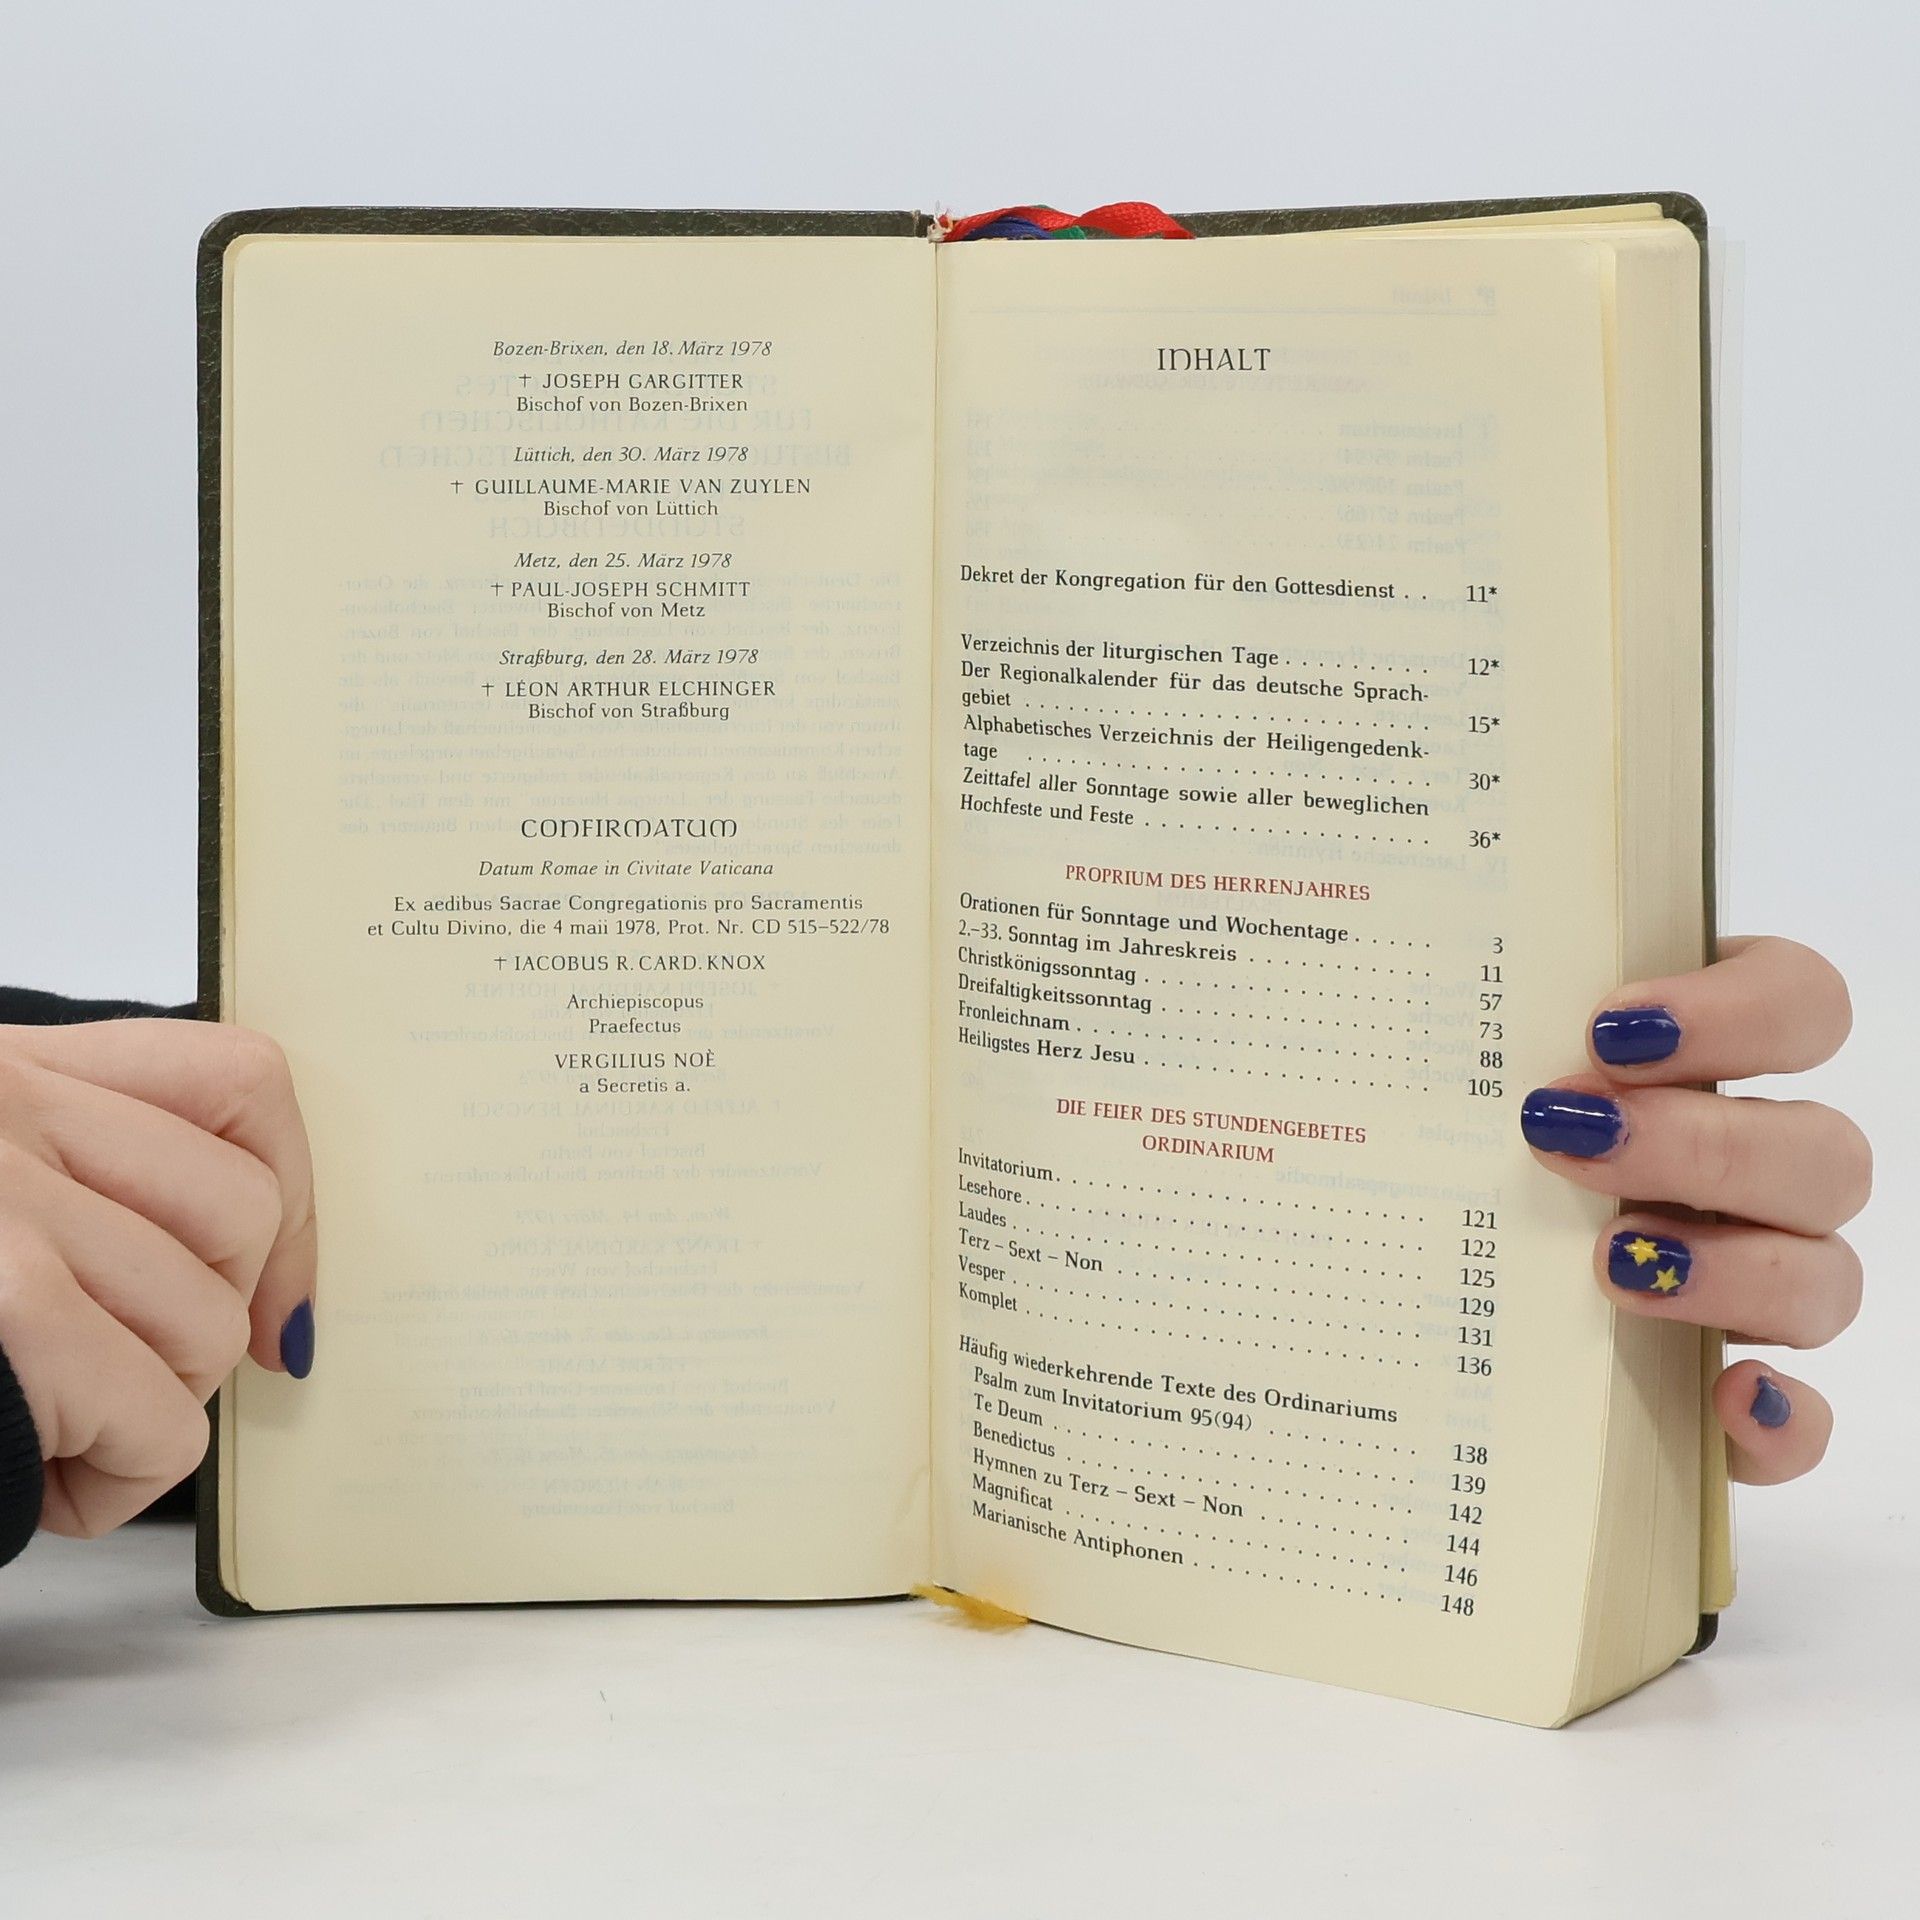 Bozen-Brixen, den 18. März 1978
† JOSEPH GARGITTER
Bischof von Bozen-Brixen
Lüttich, den 30. März 1978
† GUILLAUME-MARIE VAN ZUYLEN
Bischof von Lüttich
Metz, den 25. März 1978
† PAUL-JOSEPH SCHMITT
Bischof von Metz
Straßburg, den 28. März 1978
† LÉON ARTHUR ELCHINGER
Bischof von Straßburg
CONFIRMATUM
Datum Romae in Civitate Vaticana
Ex aedibus Sacrae Congregationis pro Sacramentis
et Cultu Divino, die 4 maii 1978, Prot. Nr. CD 515–522/78
† IACOBUS R. CARD. KNOX
Archiepiscopus
Praefectus
VERGILIUS NOÈ
a Secretis a.
INHALT
Dekret der Kongregation für den Gottesdienst . . 11*
Verzeichnis der liturgischen Tage . . . . . . . . . 12*
Der Regionalkalender für das deutsche Sprach-
gebiet . . . . . . . . . . . . . . . . . . . . . . . . 15*
Alphabetisches Verzeichnis der Heiligengedenk-
tage . . . . . . . . . . . . . . . . . . . . . . . . 30*
Zeittafel aller Sonntage sowie aller beweglichen
Hochfeste und Feste . . . . . . . . . . . . . . . . . 36*
PROPRIUM DES HERRENJAHRES
Orationen für Sonntage und Wochentage . . . . . 3
2.–33. Sonntag im Jahreskreis . . . . . . . . . . . 11
Christkönigssonntag . . . . . . . . . . . . . . . . . 57
Dreifaltigkeitssonntag . . . . . . . . . . . . . . . . 73
Fronleichnam . . . . . . . . . . . . . . . . . . . . . 88
Heiligstes Herz Jesu . . . . . . . . . . . . . . . . . 105
DIE FEIER DES STUNDENGEBETES
ORDINARIUM
Invitatorium . . . . . . . . . . . . . . . . . . . . . . 121
Lesehore . . . . . . . . . . . . . . . . . . . . . . . . 122
Laudes . . . . . . . . . . . . . . . . . . . . . . . . . 125
Terz – Sext – Non . . . . . . . . . . . . . . . . . . 129
Vesper . . . . . . . . . . . . . . . . . . . . . . . . . 131
Komplet . . . . . . . . . . . . . . . . . . . . . . . . 136
Häufig wiederkehrende Texte des Ordinariums
Psalm zum Invitatorium 95(94) . . . . . . . . . . 138
Te Deum . . . . . . . . . . . . . . . . . . . . . . . 139
Benedictus . . . . . . . . . . . . . . . . . . . . . . 142
Hymnen zu Terz – Sext – Non . . . . . . . . . . 144
Magnificat . . . . . . . . . . . . . . . . . . . . . . 146
Marianische Antiphonen . . . . . . . . . . . . . . 148